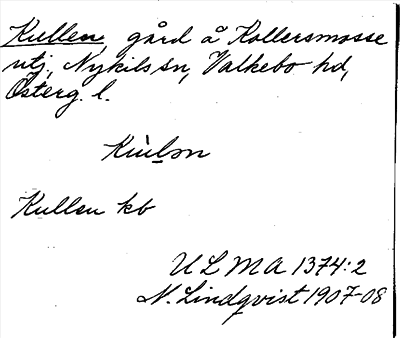 Kullen, gård å Kollersmosse
utj, Nykils sn, Valkebo hd,
Österg. l.
Kullen kb
ULMA 1374:2
N. Lindqvist 1907-08